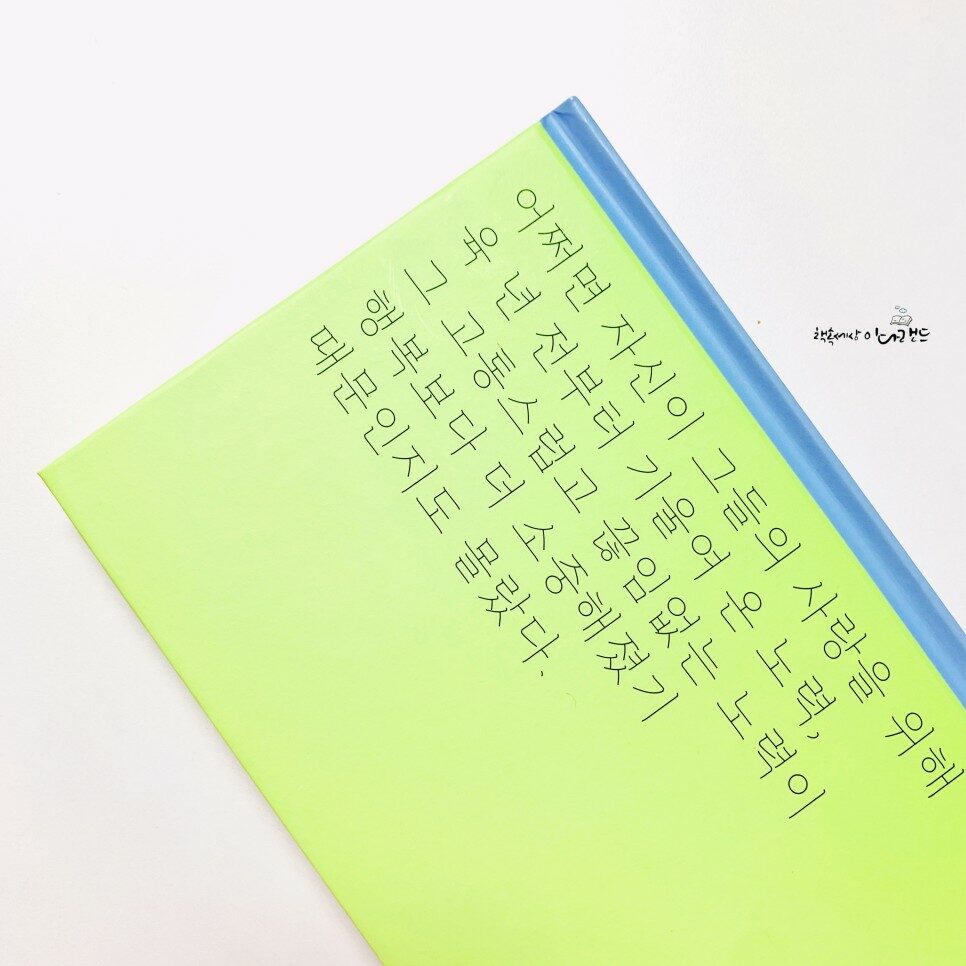 어쩌면 자신이 그들의 사랑을 위해
육 년 전부터 기울여 온 노력,
그 고통스럽고 끊임없는 노력이
행복보다 더 소중해졌기
때문인지도 몰랐다.
책속세상 이다랜드